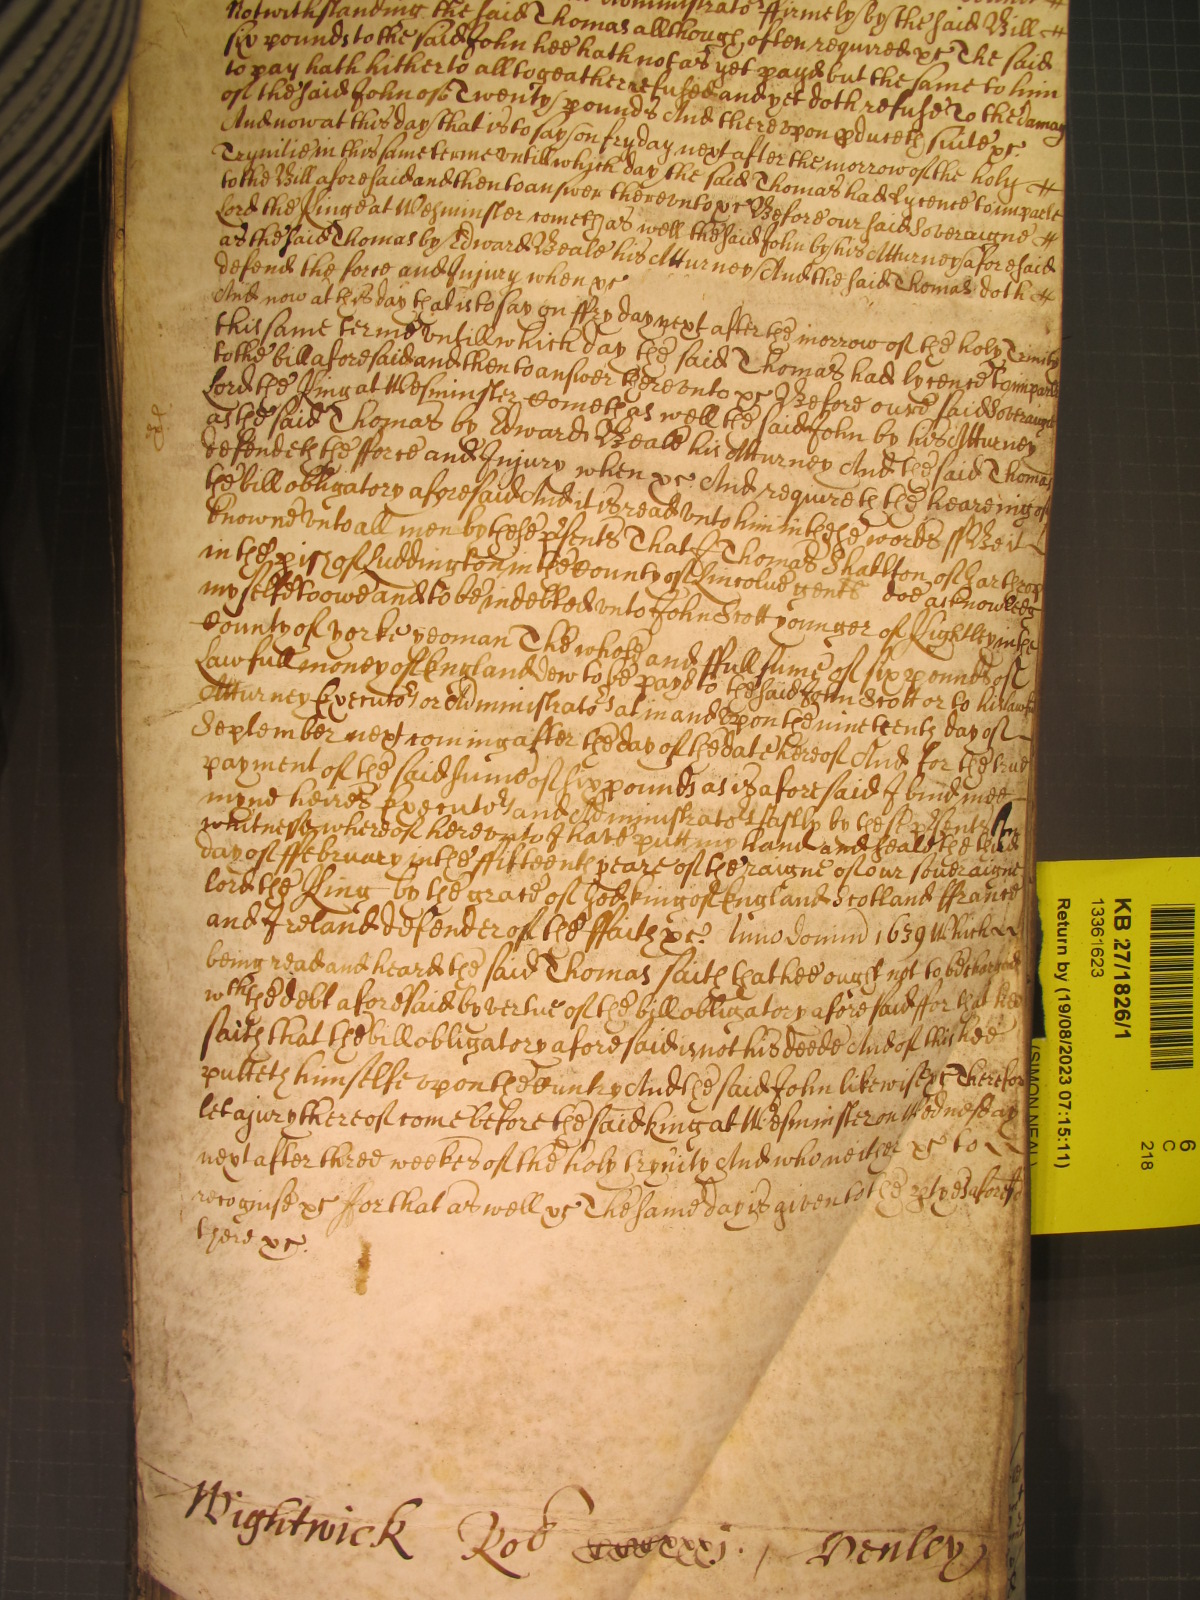 Administrator ffirmely by the said Bill
Notwithstanding the said Thomas allthough often required xc The said
six pounds to the said John hee hath not as yet payd but the same to him
to pay hath hitherto alltogeather refused and yet doth refuse To the damag
of the said John of Twenty pounds And thereupon pduceth suite xc.
And now at this day that is to say on fryday next after the morrow of the holy
Trynitie in this same terme untill which day the said Thomas had lycence to imparle
to the Bill aforesaid and then to answer thereunto xc Before our said Soveraigne
Lord the Kinge at Wesminster cometh as well the said John by his Atturney aforesaid
as the said Thomas by Edward Beale his Atturney And the said Thomas doth
defend the force and Injury when xc
And now at this day that is to say on ffryday next after the morrow of the holy Trinity
this same terme untill which day the said Thomas had lycence to imparle
to the bill aforesaid and then to answer thereunto xc Before oure said Soveraigne
Lord the King at Wesminster cometh as well the said John by his Atturney
as the said Thomas by Edward Beale his Atturney And the said Thomas
defendeth the fforce and Injury when xc And requireth the heareing of
the bill obligatory aforesaid And it is read unto him in these words ff Be it
knowne unto all men by these psents That I Thomas Shattton of
in the pish of Luddington in the County of Lincolne gent doe acknowledg
my selfe to owe and to be indebted unto John Scott younger of Kightley in the
County of Yorke yeoman The whole and ffull sume of six pounds of
Lawfull money of England dew to be payd to the said John Scott or to his lawfull
Atturney Executor or Administrator at in and upon the nineteenth day of
September next coming after the day of the date hereof And for the true
payment of the said sume of six pounds as is aforesaid I bind mee
myne heires Executors and Administrators fastly by these psents In
whitness whereof hereunto I have putt my hand and seale the third
day of ffebruary in the ffifteenth yeare of the raigne of our soveraigne
lord the King by the grace of God king of England Scotland ffrance
and Ireland defender of the ffaith xc. Anno Domini 1639 Which
being read and heard the said Thomas saith that hee ought not to be charged
wth the debt aforesaid by vertue of the bill obligatory aforesaid ffor that hee
saith that the bill obligatory aforesaid is not his deede And of this hee
putteth himselfe upon the Cuntry And the said John likewise xc Therefor
let a jury thereof come before the said king at Wesminster on Wednesday
next after three weekes of the holy trynity And who neither xc to
recognise xc for that as well xc The same day is given to the ptyes aforesd
there xc.
Wightwick Rob Denley
KB 27/1826/1
13361623
Return by (19/08/2023 07:15:11)
(SIMON NEAL)
6
C
218